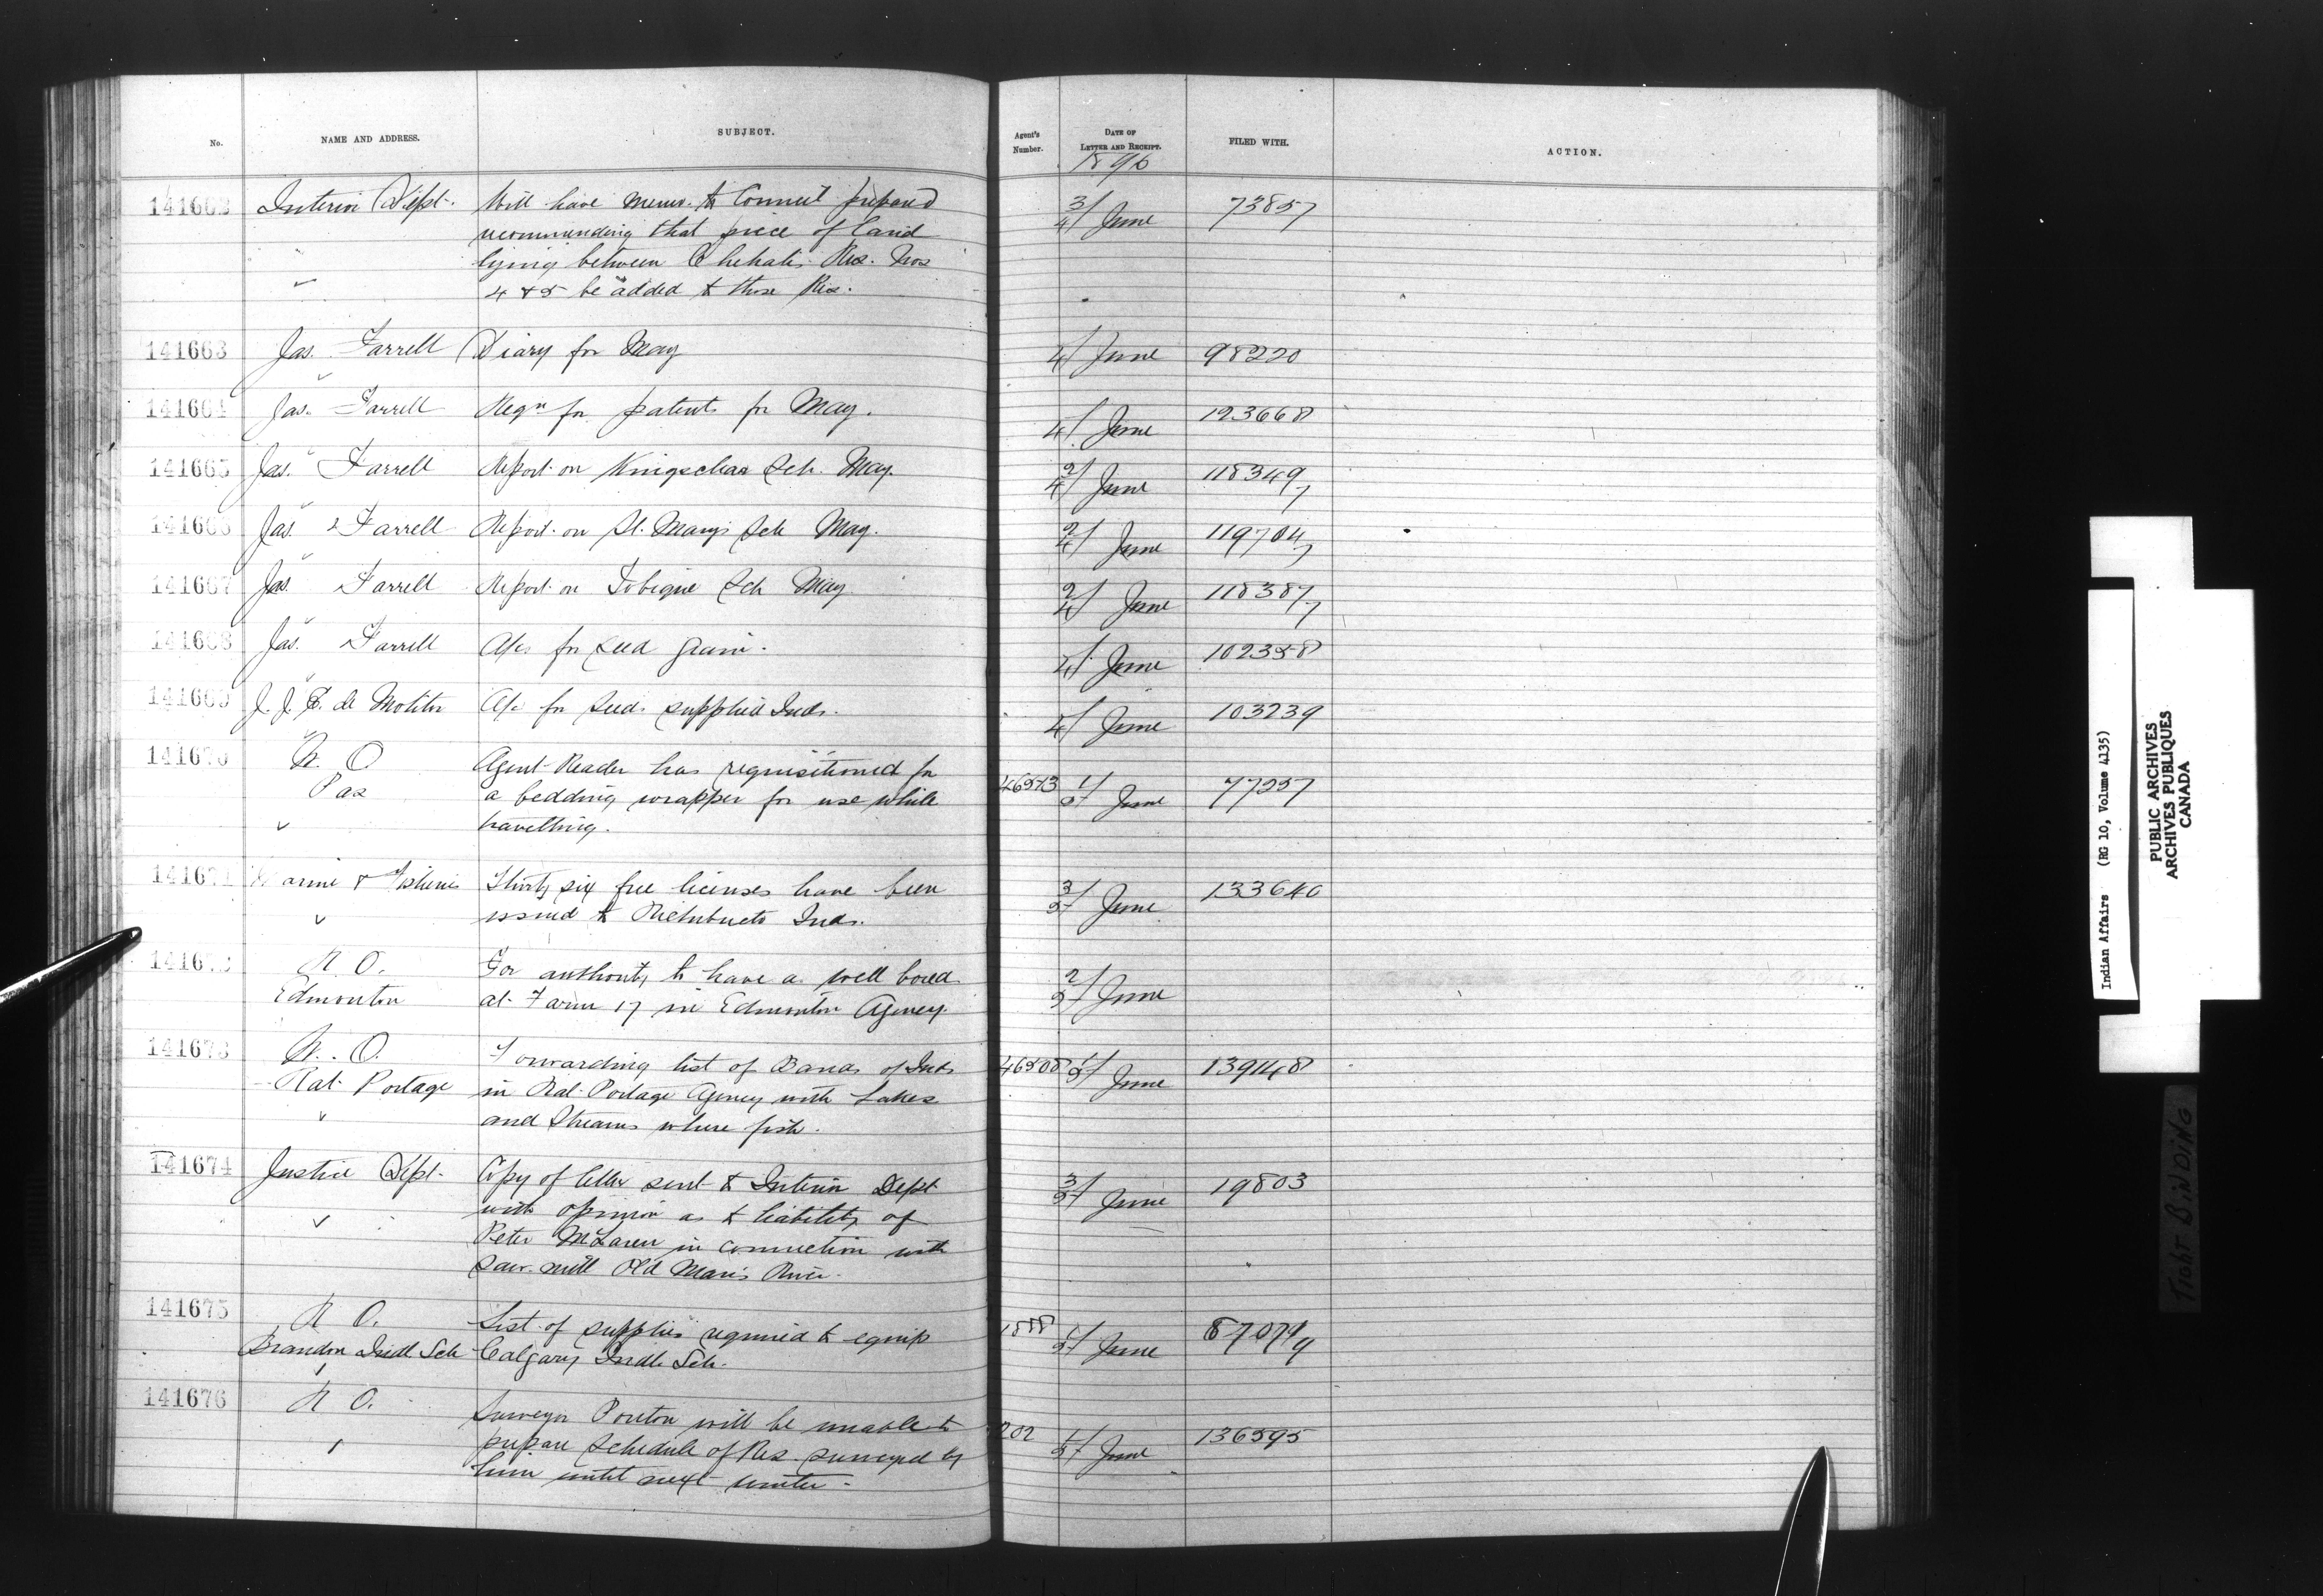 No. NAME AND ADDRESS. SUBJECT. Agent's Number. DATE OF LETTER AND RECEIPT. FILED WITH. ACTION.
1896
141662 Interior Dept. Will have memo. to Council prepared 3/4 June 73857
recommending that piece of land
lying between Chehalis Res. Nos
4 & 5 be added to those Res.
141663 Jas. Farrell Diary for May 4/ June 98220
141664 Jas. Farrell Reqn for patents for May. 4/ June 123668
141665 Jas. Farrell Report on Kingsclear Sch. May. 2/4 June 118349/7
141666 Jas. Farrell Report on St. Mary's Sch May. 2/4 June 119704/7
141667 Jas. Farrell Report on Tobique Sch May 2/4 June 118387/7
141668 Jas. Farrell A/cs for seed grain. 4/ June 102358
141669 J. J. E. de Molitor A/c for seed supplied Inds. 4/ June 103239
141670 W. O Agent Reader has requisitioned for
Pas a bedding wrapper for use while 1/5 June 77257
travelling.
141671 Marine & Fisheries Thirty six free licenses have been 3/5 June 133640
issued to Richibucto Inds.
R. O. For authority to have a well bored 2/5 June
Edmonton at Farm 17 in Edmonton Agency
141673 W. O. Forwarding list of Bands of Inds 46508 1/5 June 139148
Rat Portage in Rat Portage Agency with Lakes
and Streams where fish.
141674 Justice Dept. Copy of letter sent to Interior Dept 3/5 June 19803
with opinion as to liability of
Peter McLaren in connection with
saw mill Old Man's River.
141675 R O. List of supplies required to equip
Brandon Indl Sch Calgary Indl. Sch. 1/5 June
141676 R O. Surveyor Ponton will be unable to
prepare schedule of Res. surveyed by 202 1/5 June 136595
him until next winter
Indian Affairs (RG 10, Volume 4135)
PUBLIC ARCHIVES
ARCHIVES PUBLIQUES
CANADA
TIGHT BINDING